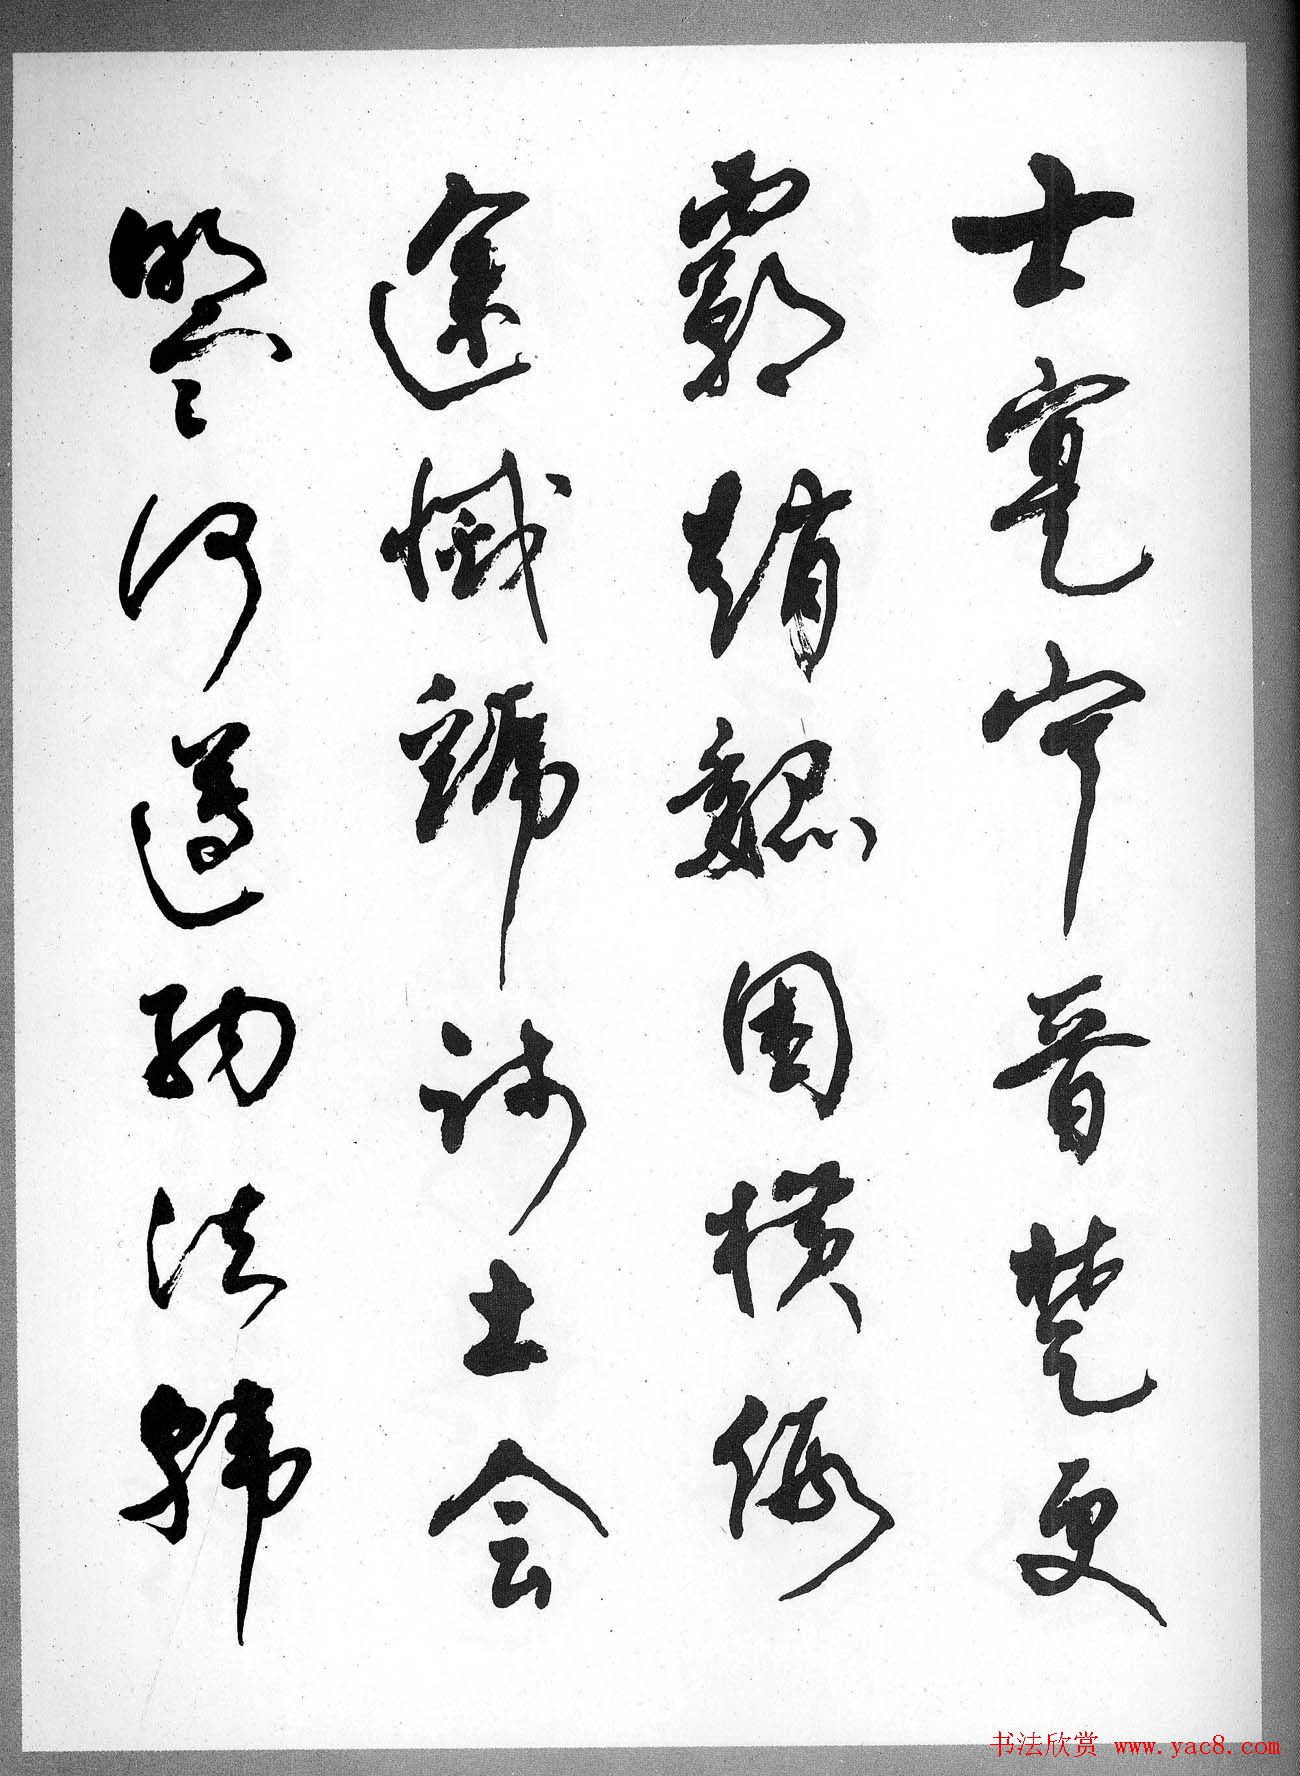 士寔宁晋楚更
霸趙魏困横假
途滅虢践土会
盟何遵約法韓
书法欣赏 www.yac8.com